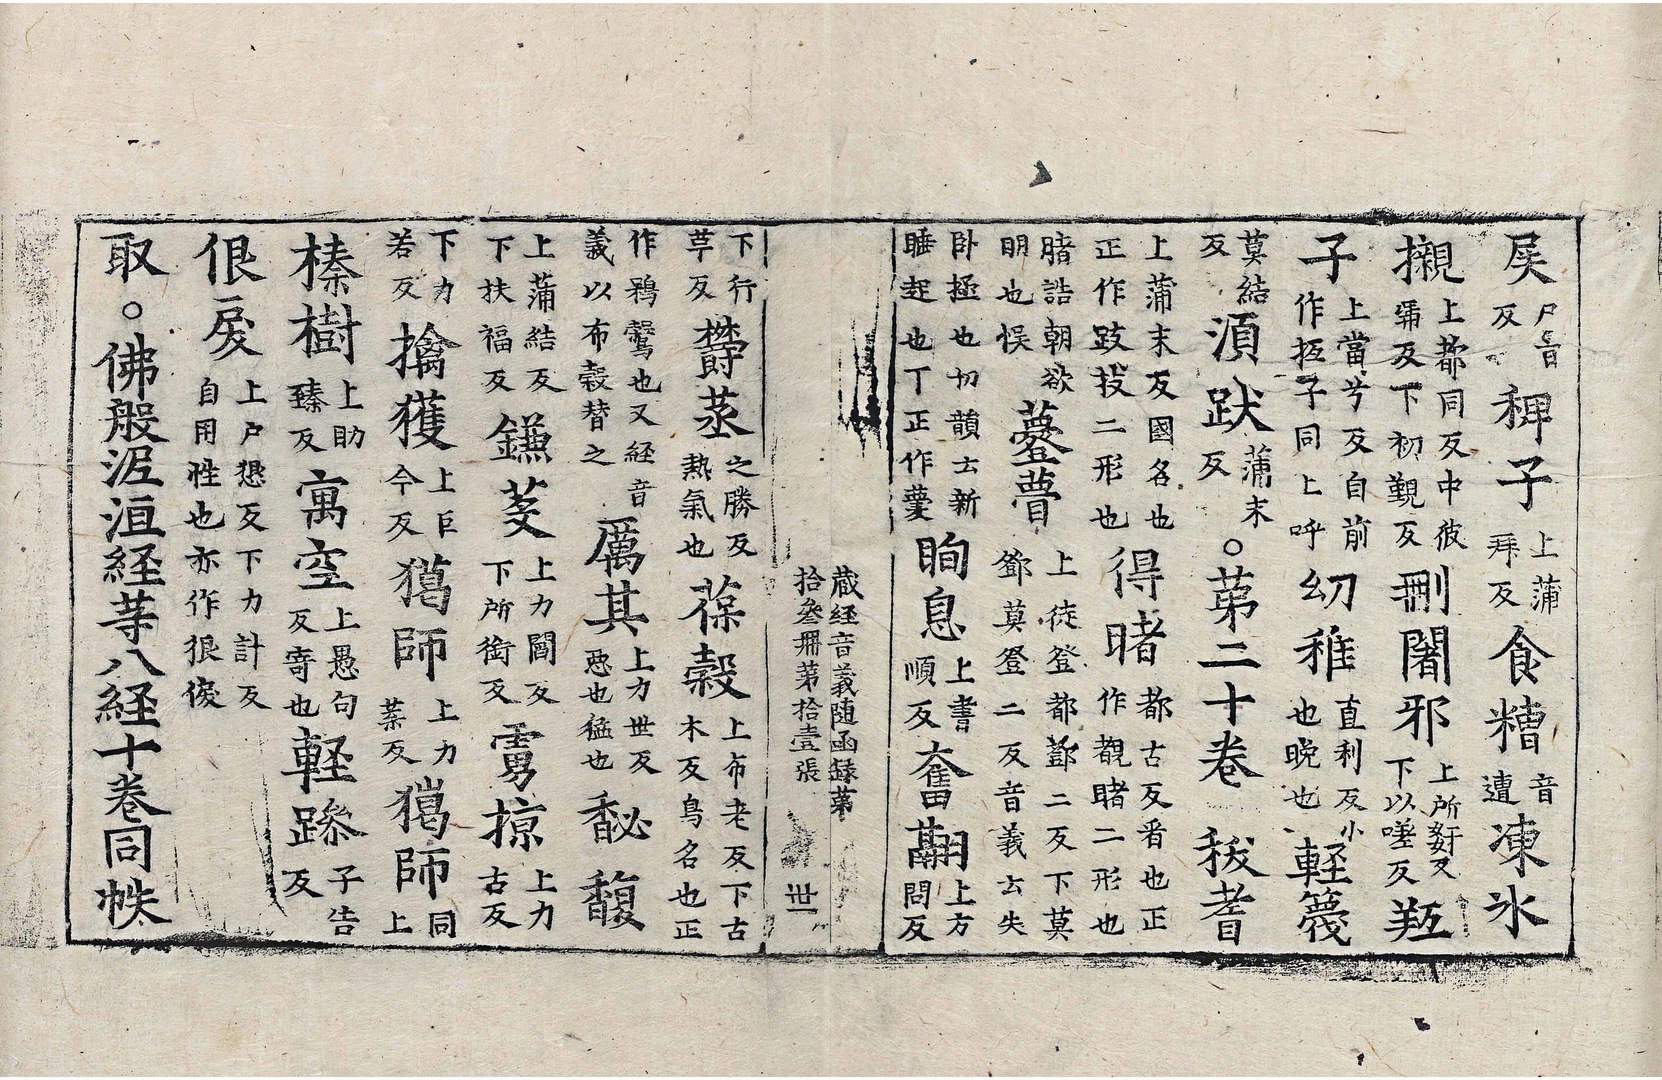 屎尸旨反稗子上蒲拜反食糟音遭凍氷
㩙上都同反中彼弭反下初覲反刪闍邪上所奸反下以嗟反羖
子上當兮反自前作㧡子同上呼幼稚直利反小也晚也軽篾
莫結反湏跋蒲末反。苐二十卷 秡耆
上蒲末反國名也正作跋㧞二形也得睹都古反又看也正作覩睹二形也
䐗誥朝欲明也悮薹瞢上徒登都鄧二反下莫鄧莫登二反音義云失
卧極也切韻云新睡起也丁正作㝱眴息上書順反奮翮上方問反
藏経音義随函録苐
拾叄冊苐拾壹張 世
下行草反欝蒸之勝反熱氣也葆糓上布老反下古木反鳥名也正
作鴇鷇也又経音義以布穀替之厲其上力世反悪也猛也馝馥
上蒲結反下扶福反鐮芟上力閻反下所銜反虜掠上力古反
下力若反擒獲上巨今反獦師上力葉反獵師同上
榛樹上助臻反寓空上愚句反寄也軽躁子告反
佷戾上户懇反下力計反自用性也亦作狠㑦
取。佛般泥洹経䓁八経十卷同帙